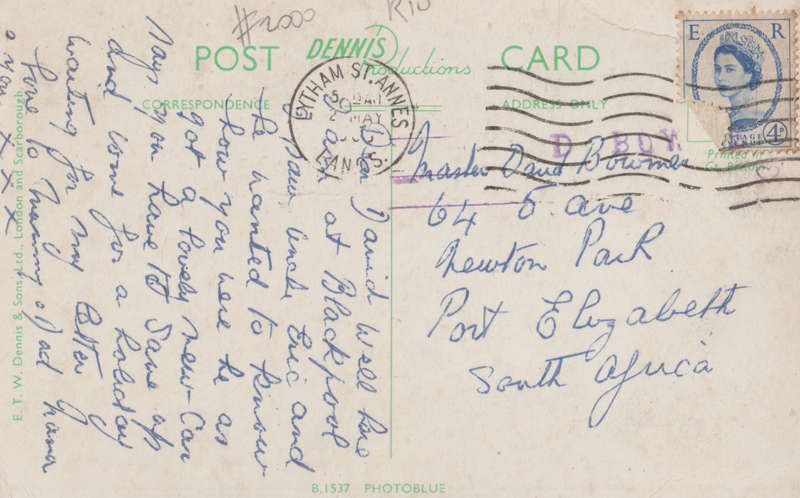 #2000
R10
POST DENNIS Productions CARD
CORRESPONDENCE
ADDRESS ONLY
E R
POSTAGE 4D
Printed in
LYTHAM ST. ANNES
MAY
LANCS
D. BOW
Dear David Well here
I am at Blackpool
Saw Uncle Eric and
he wanted to know
how you were he as
got a lovely new Car
says you have to save up
and come for a holiday
waiting for my letter
love to Mummy & Dad Nana
x x x x
Master David Bowmer
64 5 ave
Newton Park
Port Elizabeth
South Africa
E. T. W. Dennis & Sons, Ltd., London and Scarborough.
B.1537 PHOTOBLUE